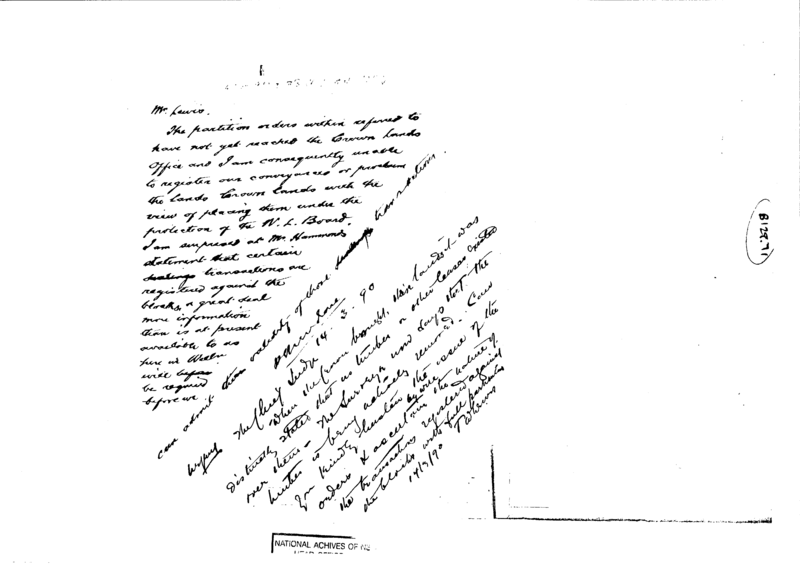 Mr. Lewis.
The partition orders within referred to
have not yet reached the Crown Lands
Office and I am consequently unable
to register our conveyances or proclaim
the lands Crown Lands with the
view of placing them under the
protection of the W. L. Board.
I am surprised at Mr. Hammonds
statement that certain
dealings transactions are
registered against the
blocks, a great deal
more information
than is at present
available to us
here in
will before
be required
before we
can admit the validity of those dealings transactions.
14. 3. 90
The Chief Judge
When we bought, this land it was
distinctly stated that no timber or other leases existed
over them - The Surveyor now says that the
timber is being actively removed. Can
you kindly hasten the issue of the
orders & ascertain the nature of
the transactions registered against
the blocks with full particulars
TW Lewis
14/3/90
B129.71
NATIONAL ACHIVES OF NZ